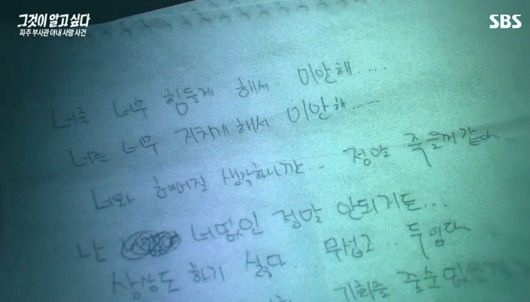 그것이 알고 싶다
파주 부사관 아내 사망 사건
SBS
너를 너무 힘들게 해서 미안해....
너를 너무 지치게 해서 미안해....
너와 헤어질 생각하니깐.. 정말 죽을꺼같다
난 너없인 정말 안되거든...
상상도 하기 싫다.. 무섭고.. 두렵다
기회를 줄순없는